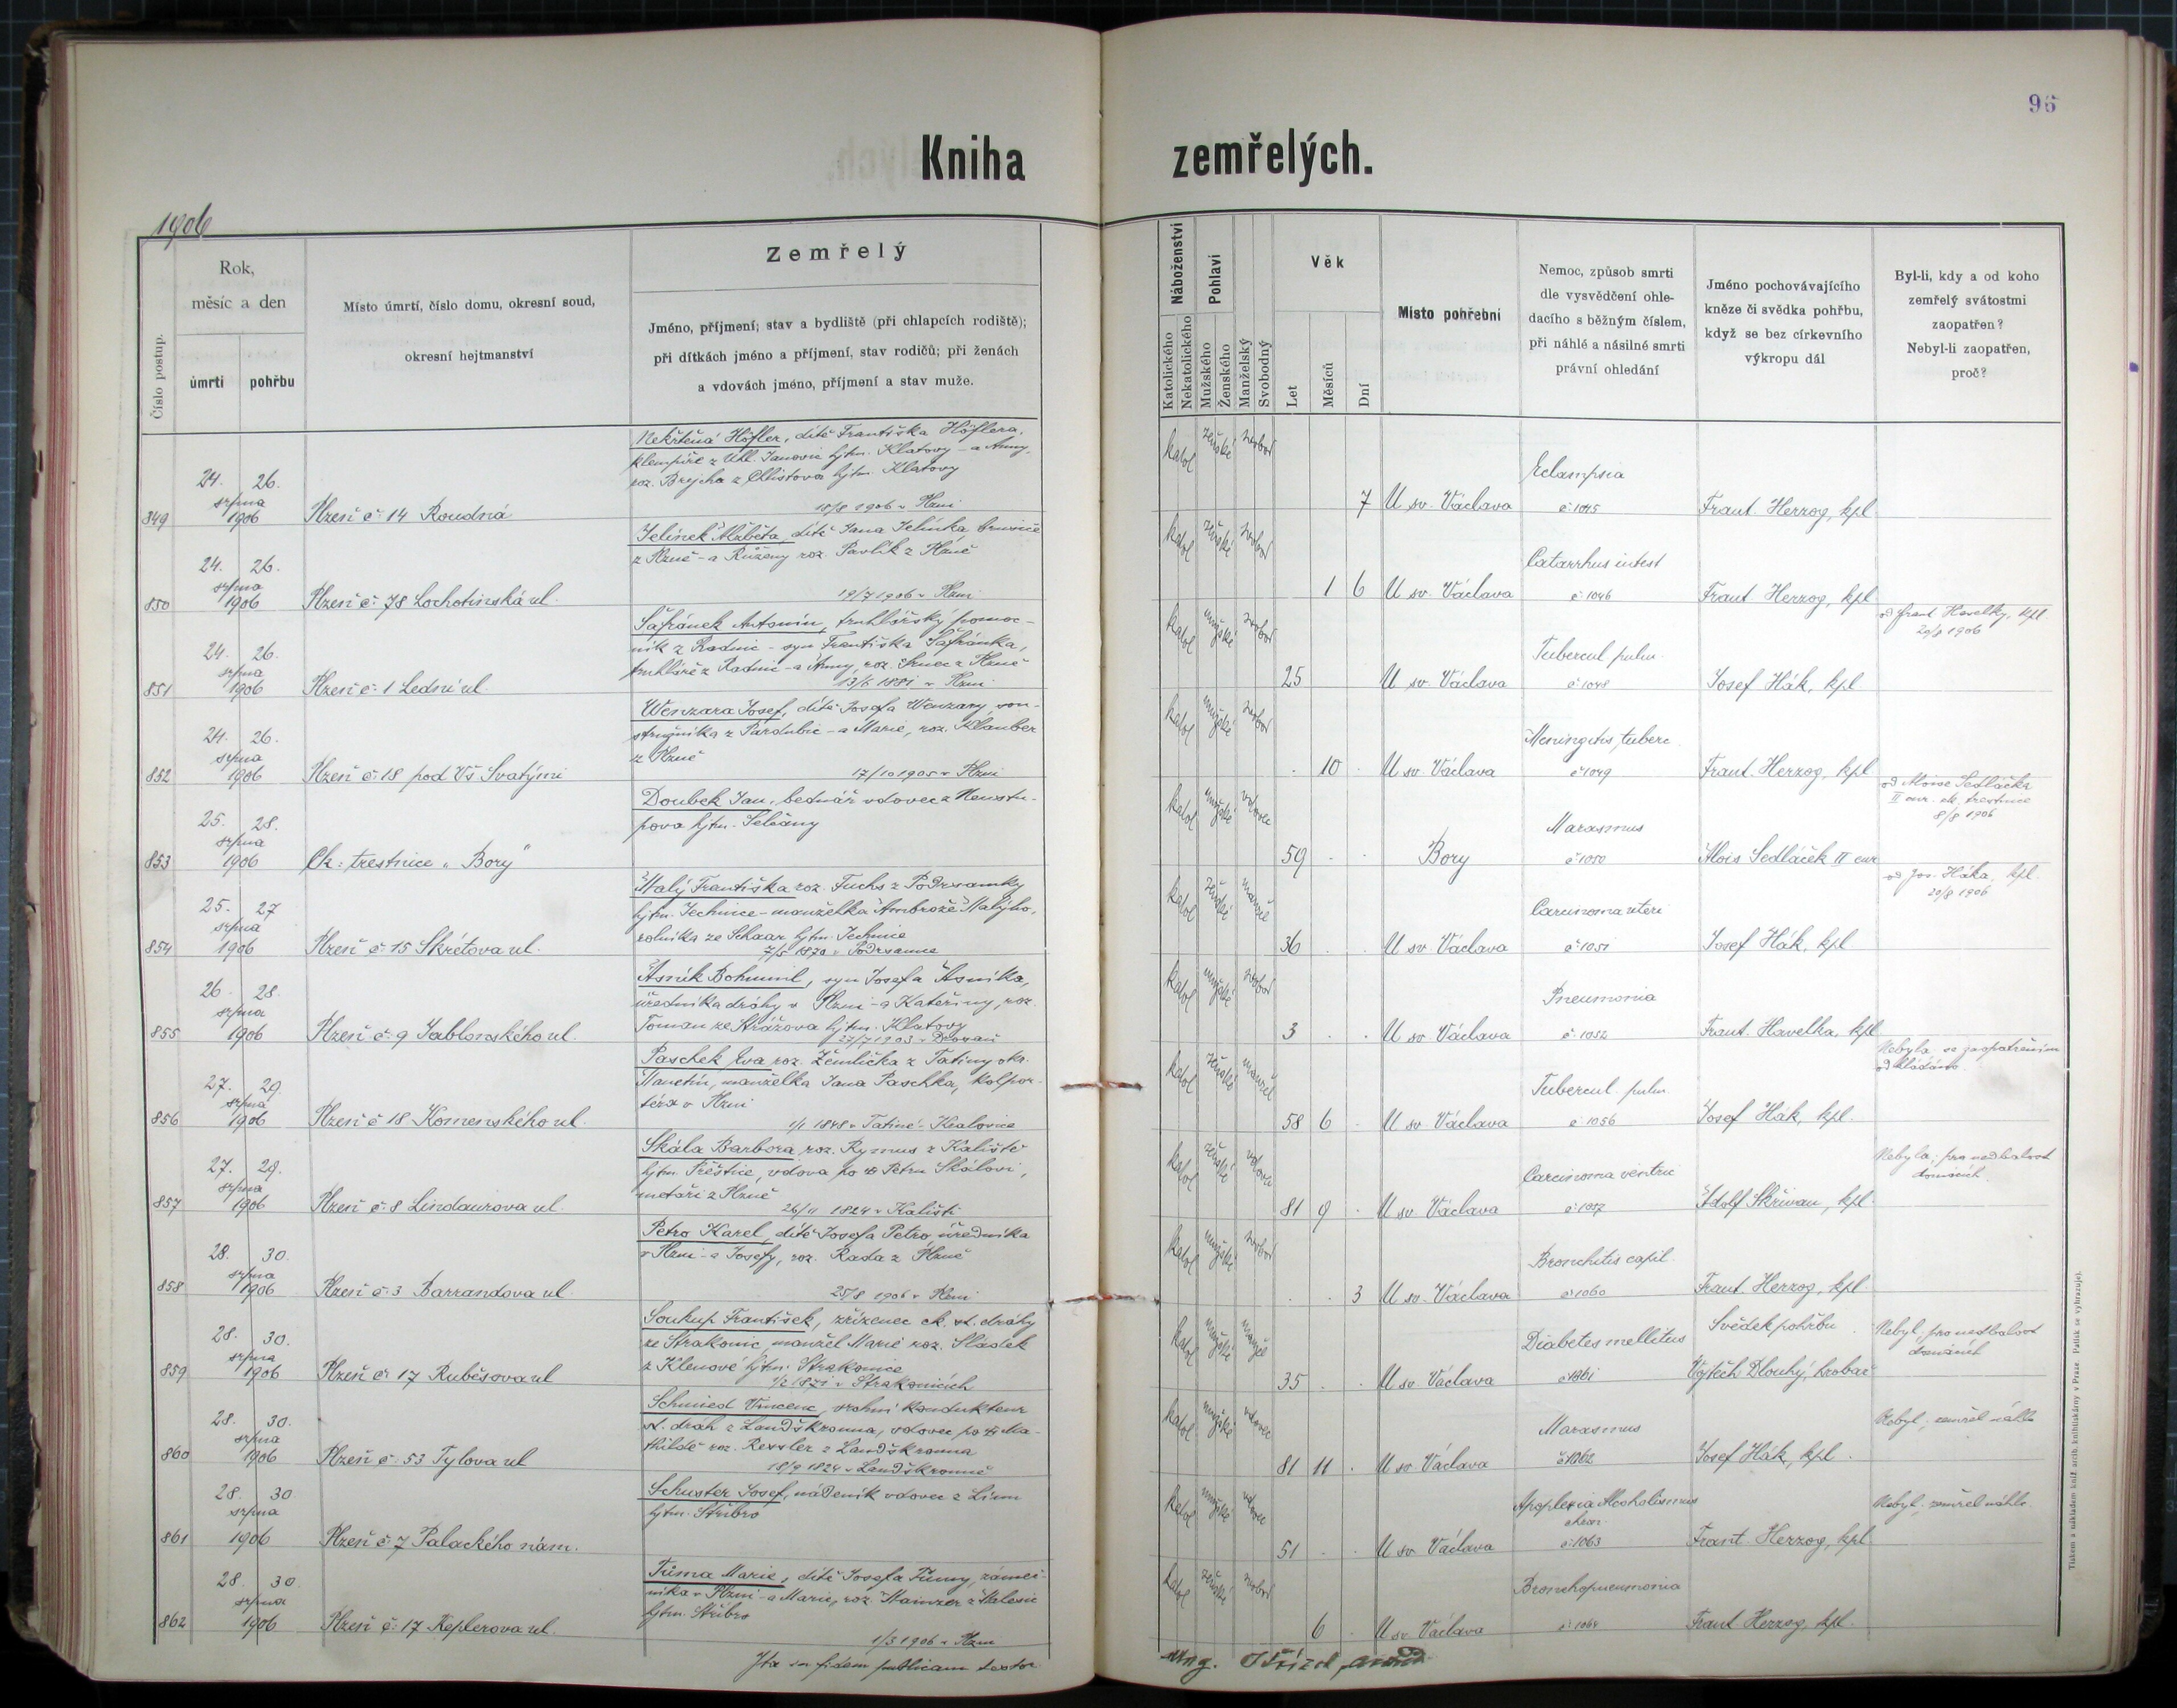 96
Kniha zemřelých.
1906
Číslo postup.
Rok,
měsíc a den
úmrtí
pohřbu
Místo úmrtí, číslo domu, okresní soud,
okresní hejtmanství
Zemřelý
Jméno, příjmení; stav a bydliště (při chlapcích rodiště);
při dítkách jméno a příjmení, stav rodičů; při ženách
a vdovách jméno, příjmení a stav muže.
Náboženství
Katolického
Nekatolického
Pohlaví
Mužského
Ženského
Manželský
Svobodný
Věk
Let
Měsíců
Dní
Místo pohřební
Nemoc, způsob smrti
dle vysvědčení ohle-
dacího s běžným číslem,
při náhlé a násilné smrti
právní ohledání
Jméno pochovávajícího
kněze či svědka pohřbu,
když se bez církevního
výkropu dál
Byl-li, kdy a od koho
zemřelý svátostmi
zaopatřen?
Nebyl-li zaopatřen,
proč?
849
24. 26.
srpna
1906
Plzeň č: 14 Roudná
Nekřtěná Höfler, dítě Františka Höflera,
klempíře z Uhl. Janovic hjtm. Klatovy - a Anny,
roz. Brejcha z hjtm. Klatovy
18/8 1906 v Plzni
katol ženské svobod
7
U sv. Václava
Eclampsia
č: 1045
Frant. Herzog, kpl.
850
24. 26.
srpna
1906
Plzeň č: 78 Lochotinská ul.
Jelínek Alžběta, dítě Jana Jelínka, brusiče
z Plzně - a Růženy roz. Pavlík z Plzně
19/7 1906 v Plzni
katol ženské svobod
1 6
U sv. Václava
Catarrhus intest
č: 1046
Frant. Herzog, kpl
851
24. 26.
srpna
1906
Plzeň č: 1 Lední ul.
Šafránek Antonín, truhlářský pomoc-
ník z Radnic - syn Františka Šafránka,
truhláře z Radnic - a Anny, roz. z Plzně
13/6 1881 v Plzni
katol mužské svobod
25
U sv. Václava
Tubercul pulm.
č: 1048
Josef Hák, kpl
od Frant Havelky, kpl.
20/8 1906
852
24. 26.
srpna
1906
Plzeň č: 18 pod Vš Svatými
Wenzara Josef, dítě Josefa Wenzary, sou-
stružníka z Pardubic - a Marie, roz. Klauber
z Plzně
17/10 1905 v Plzni
katol mužské svobod
10
U sv. Václava
Meningitis tuberc.
č: 1049
Frant. Herzog, kpl
853
25. 28.
srpna
1906
Ck: trestnice „Bory"
Doubek Jan, bednář vdovec z Neustu-
pova hjtm. Selčany
katol mužské vdovec
59
Bory
Marasmus
č: 1050
Alois Sedláček II cur
od Aloise Sedláčka
II cur. ck. trestnice
8/8 1906
854
25. 27
srpna
1906
Plzeň č: 15 Skrétova ul.
Malý Františka roz. Fuchs z Podrsamky
hjtm. Jechnice - manželka Ambrože Malýho,
rolníka ze Schaar hjtm. Jechnice
7/5 1870 v Podrsamce
katol ženské manžel
36
U sv. Václava
Carcinoma uteri
č: 1051
Josef Hák, kpl
od Jos. Háka, kpl.
20/8 1906
855
26. 28.
srpna
1906
Plzeň č: 9 Jablonského ul.
Asník Bohumil, syn Josefa Asníka,
úředníka dráhy v Plzni - a Kateřiny, roz.
Toman ze Strážova hjtm. Klatovy
27/7 1903
katol mužské svobod
3
U sv. Václava
Pneumonia
č: 1052
Frant. Havelka, kpl
856
27. 29.
srpna
1906
Plzeň č 18 Komenského ul.
Paschek Eva roz. Žemlička z Tatiny okr.
Manetín, manželka Jana Paschka, kolpor-
téra v Plzni
1/1 1848 v Tatiné - Kralovice
katol ženské manžel
58 6
U sv. Václava
Tubercul pulm.
č: 1056
Josef Hák, kpl.
Nebyla se zaopatřením
odkládáno
857
27. 29.
srpna
1906
Plzeň č: 8 Lindaurova ul.
Skála Barbora roz. Rymus z Kaliště
hjtm. Přeštice, vdova po Petru Skálovi,
metaři z Plzně
26/11 1824 v Kališti
katol ženské vdova
81 9
U sv. Václava
Carcinoma ventric
č: 1057
Adolf Skřivan, kpl
Nebyla; pro nedbalost
domácích
858
28. 30.
srpna
1906
Plzeň č: 3 Barrandova ul.
Petro Karel, dítě Josefa Petro, úředníka
v Plzni - a Josefy, roz. Rada z Plzně
25/8 1906 v Plzni
katol mužské svobod
3
U sv. Václava
Bronchitis capil.
č: 1060
Frant. Herzog, kpl.
859
28. 30.
srpna
1906
Plzeň č: 17 Rubešova ul
Soukup František, zřízenec ck. st. dráhy
ze Strakonic, manžel Marie roz. Sladek
z Klenové hjtm. Strakonice
1/2 1871 v Strakonicích
katol mužské manžel
35
U sv. Václava
Diabetes mellitus
č 1061
Svědek pohřbu
Vojtěch Dlouhý, hrobař
Nebyl, pro nedbalost
domácích
860
28. 30.
srpna
1906
Plzeň č: 53 Tylova ul
Schmied Vincenc, vrchní kondukteur
st. drah z Landškrouna, vdovec po Ma-
thildě roz. Ressler z Landškrouna
18/9 1824 v Landškrouně
katol mužské vdovec
81 11
U sv. Václava
Marasmus
č 1062
Josef Hák, kpl.
Nebyl; zemřel náhle
861
28. 30
srpna
1906
Plzeň č: 7 Palackého nám.
Schuster Josef, nádeník vdovec z
hjtm. Stříbro
katol mužské vdovec
51
U sv. Václava
Apoplexia Alcoholismus
chron.
č: 1063
Frant. Herzog, kpl
Nebyl; zemřel náhle.
862
28. 30.
srpna
1906
Plzeň č: 17 Keplerova ul.
Tůma Marie, dítě Josefa Tůmy, zámeč-
níka v Plzni - a Marie, roz. Mainzer z Malesic
hjtm. Stříbro
1/3 1906 v Plzni
katol ženské svobod
6
U sv. Václava
Bronchopneumonia
č: 1064
Frant Herzog, kpl.
Ita in fidem publicam testor
Tiskem a nákladem kníž. arcib. knihtiskárny v Praze. Patisk se vyhrazuje).